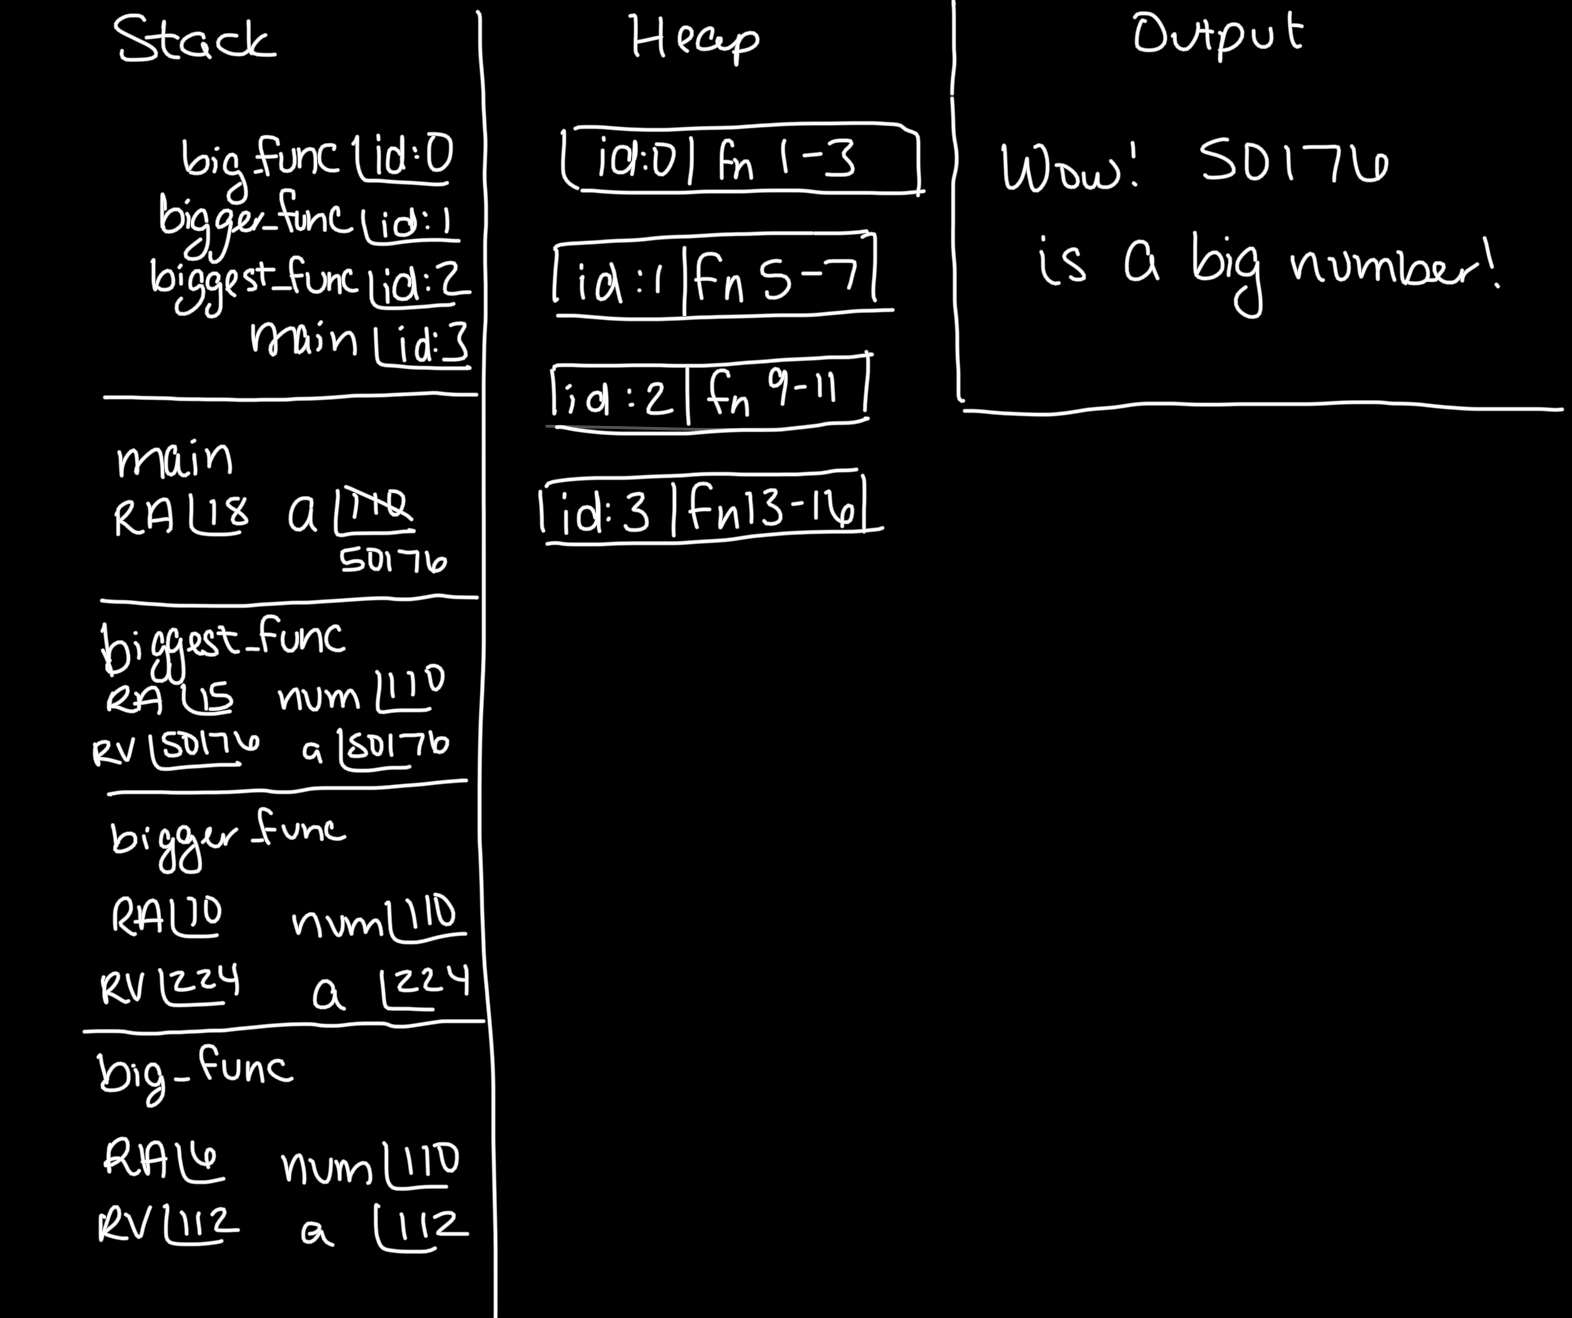 Stack
big_func id:0
bigger_func id:1
biggest_func id:2
main id:3
main
RA 18 a 110
50176
biggest_func
RA 15 num 110
RV 50176 a 50176
bigger_func
RA 10 num 110
RV 224 a 224
big_func
RA 6 num 110
RV 112 a 112
Heap
id:0 fn 1-3
id:1 fn 5-7
id:2 fn 9-11
id:3 fn 13-16
Output
Wow! 50176
is a big number!